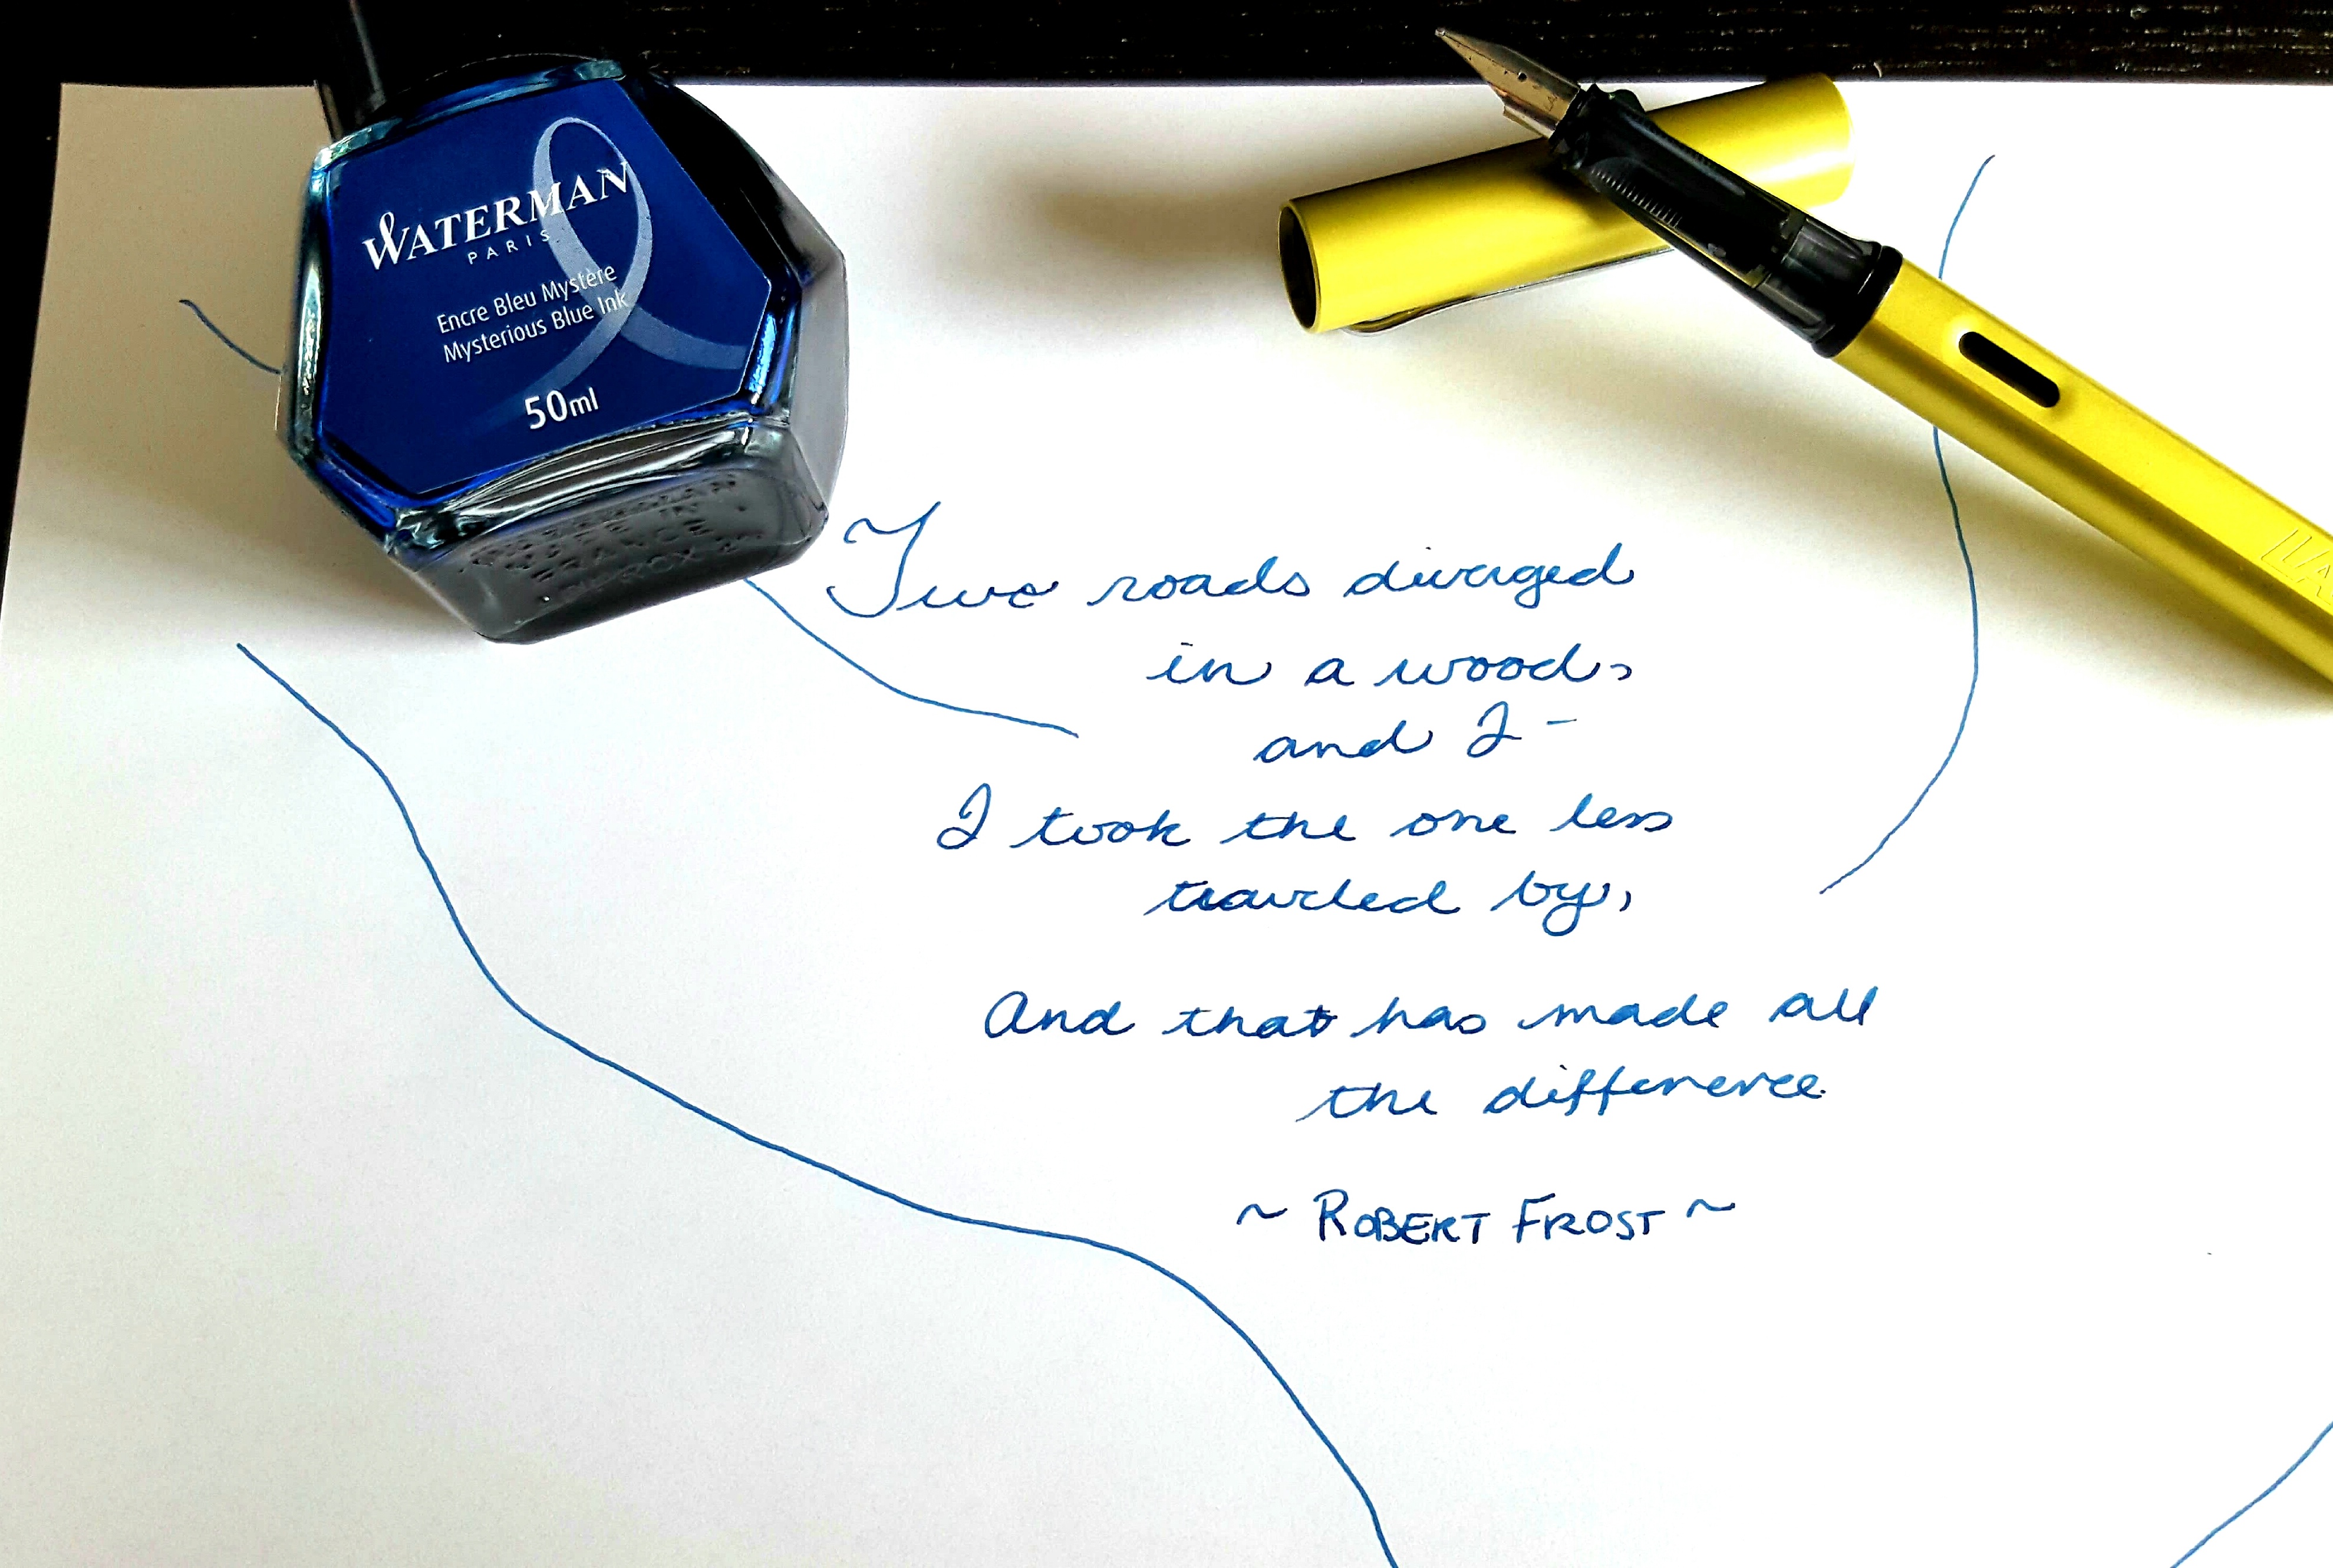 WATERMAN
PARIS
Encre Bleu Mystère
Mysterious Blue Ink
50ml
MADE IN
FRANCE
Two roads diverged
in a wood,
and I –
I took the one less
traveled by,
And that has made all
the difference.
~ ROBERT FROST ~